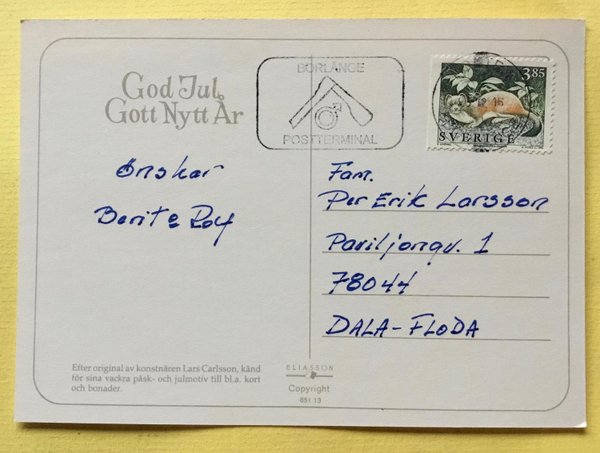 God Jul
Gott Nytt År
BORLÄNGE
POSTTERMINAL
3.85
SVERIGE
Önskar
Berit & Rolf
Fam.
Per Erik Larsson
Paviljongv. 1
78044
DALA-FLODA
Efter original av konstnären Lars Carlsson, känd
för sina vackra påsk- och julmotiv till bl.a. kort
och bonader.
ELIASSON
Copyright
651 13